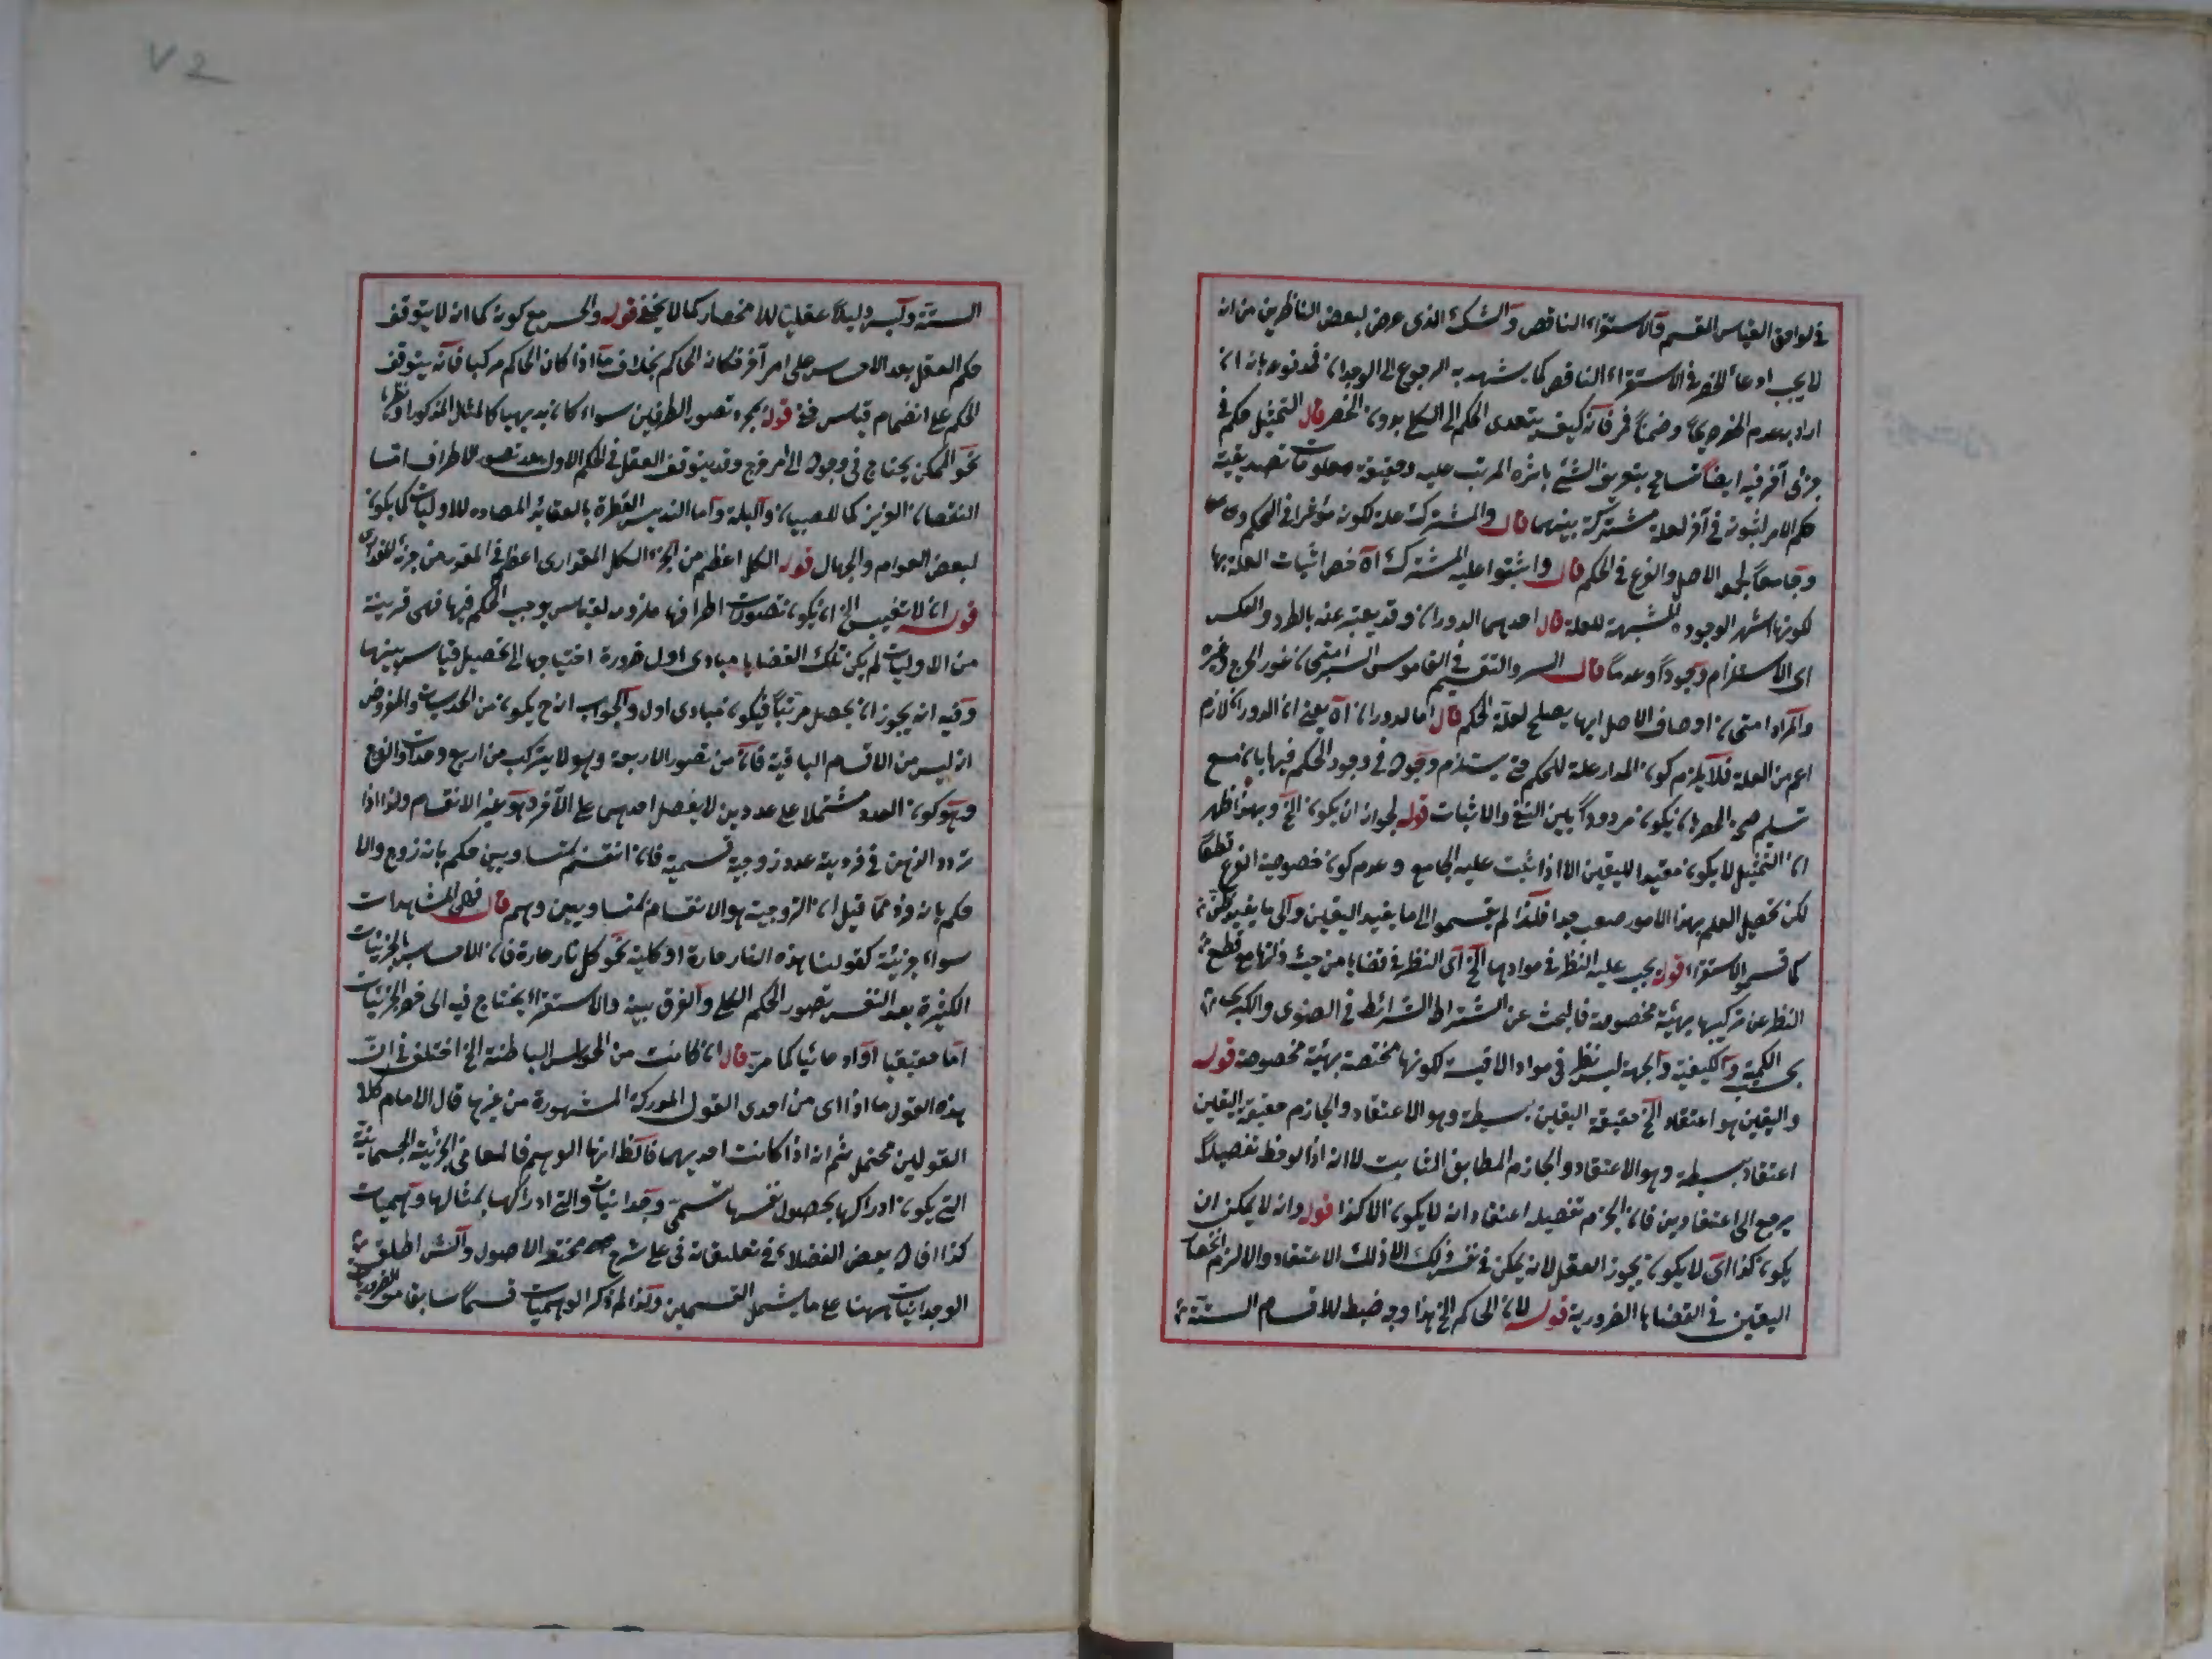 في لواحق القياس القسم فالاستقراء الناقص والشك الذي عرض لبعض الناظرين من انه
لا يجب ادعاء الحصر في الاستقراء الناقص كما يشهد به الرجوع الى الوجدان فمدفوع بانه ان
اراد به عدم الحصر صريحا وضمنا فر فانه كيف يتعدى الحكم الى الكلي بدون الحصر قال التمثيل حكم في
جزئي آخر فيه ايضا تسامح بتعريف الشئ باثره المرتب عليه وحقيقته معلومات تصديقية
حكم الامر لثبوته في آخر لعلة مشتركة بينهما قال والمشتركة علة لكونه مؤثرا في الحكم
وجامعا لجمع الاصل والفرع في الحكم قال واثبتوا علية المشترك آه خص اثبات العلة بها
لكونها اشهر الوجوه المثبتة للعلة قال احدهما الدوران وقد يعبر عنه بالطرد والعكس
اى الاستلزام وجودا وعدما قال السبر والتقسيم في القاموس السبر امتحان غور الجرح وغيره
والمراد امتحان اوصاف الاصل ايها يصلح لعلة الحكم قال اما الدوران آه يعني ان الدوران لازم
اعم من العلة فلا يلزم كون المدار علة للحكم حتى يستلزم وجوده في وجود الحكم فيها بان منع
تسليم صحة الحصر بان يكون مردودا بين النفي والاثبات قوله لجواز ان يكون الخ وبهذا ظهر
ان التمثيل لا يكون مفيدا لليقين الا اذا ثبت علية الجامع وعدم كون خصوصية الفرع قطعا
لكن تحصيل العلم بهذا الامور صعب جدا فلذا لم يقسموا الى ما يفيد اليقين والى ما يفيد ظن
كما قسموا الاستقراء قوله يجب عليه النظر في موادها الخ اى النظر في قضايا من حيث ذاتها مع قطع
النظر عن تركيبها بهيئة مخصوصة فالبحث عن اشتراط الشرائط في الصغرى والكبرى
بحسب الكمية والكيفية والجهة ليس نظر في مواد الاقيسة لكونها مختصة بهيئة مخصوصة قوله
واليقين هو اعتقاد الخ حقيقة اليقين بسيطة وهو الاعتقاد والجازم حقيقة اليقين
اعتقاد بسيطة وهو الاعتقاد والجازم المطابق الثابت لا انه اذا لوحظ تفصيلا
يرجع الى اعتقادين فان الجزم تفصيله اعتقاد انه لا يكون الا كذا قوله وانه لا يمكن ان
يكون كذا اى لا يكون تجويز العقل لانه يمكن في نفس ذلك الا ذلك الاعتقاد والا لزم انحصار
اليقين في القضايا الضرورية قوله لان الحاكم الخ هذا وجه ضبط للاقسام الستة
الستة وليس دليلا عقليا للانحصار كما لا يخفى قوله والحس مع كونه كما انه لا يتوقف
حكم العقل بعد الاحساس على امر آخر فكانه الحاكم بخلاف ما اذا كان الحاكم مركبا فانه يتوقف
الحكم على انضمام قياس خفي قوله بمجرد تصور الطرفين سواء كان بديهيا كالمثل المذكور او نظريا
نحو الممكن يحتاج في وجوده الى امر مرجح وقد يتوقف العقل في الحكم الاول بعد تصور الاطراف اما
النقصان الغريزى كما للصبيان والبله واما لتدنيس الفطرة بالعقائد المضاده للاوليات كما يكون
لبعض العوام والجهال قوله الكل اعظم من الجزء الكل المقدارى اعظم في المقدار من جزئه المقدارى
قوله ان لا تغيب الخ ان يكون تصورات اطرافها ملزوم لقياس يوجب الحكم فيها فهى قريبة
من الاوليات لم يكن تلك القضايا مبادى اول ضرورة احتياجها الى تحصيل قياس بينها
وفيه انه يجوز ان يحصل مرتبا فيكون مبادى اول والجواب انه ح يكون من الحدسيات والمفروض
انه ليس من الاقسام الباقية فان من تصور الاربعة وهو لا يتركب من اربع وحدات والزوج
وهو كون العدد مشتملا على عددين لا يفضل احدهما على الآخر وهو عين الانقسام ولذا اذا
تردد الذهن في فردية عدد زوجية قسمية فان انقسم بمتساويين حكم بانه زوج والا
حكم بانه فرد مما قيل ان الزوجية هو الانقسام بمتساويين وهم قال فهى المشاهدات
سواء جزئية كقولنا هذه النار حارة او كلية نحو كل نار حارة فان الاحساس بالجزئيات
الكثيرة بعد النفس تصور الحكم الكلي والفرق بينه والاستقراء يحتاج فيه الى حصر الجزئيات
اما حقيقيا او ادعائيا كما مر قال ان كانت من الحواس الباطنة الخ اختلف في ان
هذه القول ما اذا اى من احدى القول المدركة المشهورة من غيرها قال الامام كلا
القولين محتمل ثم انه اذا كانت احديهما فالظ انها الوهم فالمعاني الجزئية الجسمانية
التي يكون ادراكها بحصول نفسها تسمى وجدانيات والتي ادراكها بمثالها وهميات
كذا افاده بعض الفضلاء في تعليقاته في على شرح مختصر الاصول والش اطلق
الوجدانيات ههنا على ما يشمل القسمين ولذا لم يذكر الوهميات قسما سابقا من الضروريات